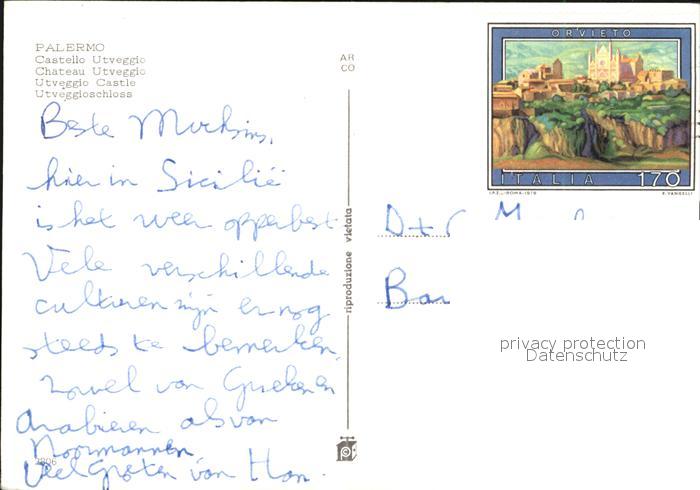 PALERMO
Castello Utveggio
Chateau Utveggio
Utveggio Castle
Utveggioschloss
AR
CO
Beste
hier in Sicilië
is het weer opperbest.
Vele verschillende
culturen zijn er nog
steeds te bemerken,
zowel van Grieken en
Arabieren als van
Noormannen.
Veel Groeten van Han.
riproduzione vietata
ORVIETO
ITALIA 170
I.P.Z.S.-ROMA-1979
E. VANGELLI
D + r M
Bar
privacy protection
Datenschutz